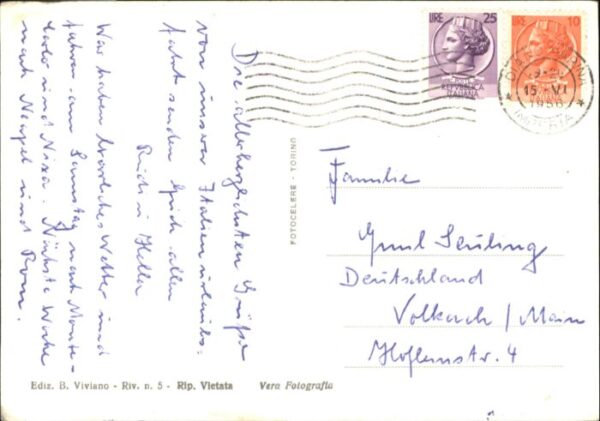 Die allerherzlichsten Grüße
von unserer Italienurlaubs-
fahrt senden Euch allen
Rudi u Hella
Wir haben herrliches Wetter und
fahren am Samstag nach Monte-
carlo und Nizza. Nächste Woche
nach Neapel und Rom.
FOTOCELERE - TORINO
LIRE 25
REPUBBLICA
ITALIANA
LIRE 10
15 VI
1956
IMPERIA
Familie
Emil Seuling
Deutschland
Volkach / Main
Str. 4
Ediz. B. Viviano - Riv. n. 5 - Rip. Vietata Vera Fotografia